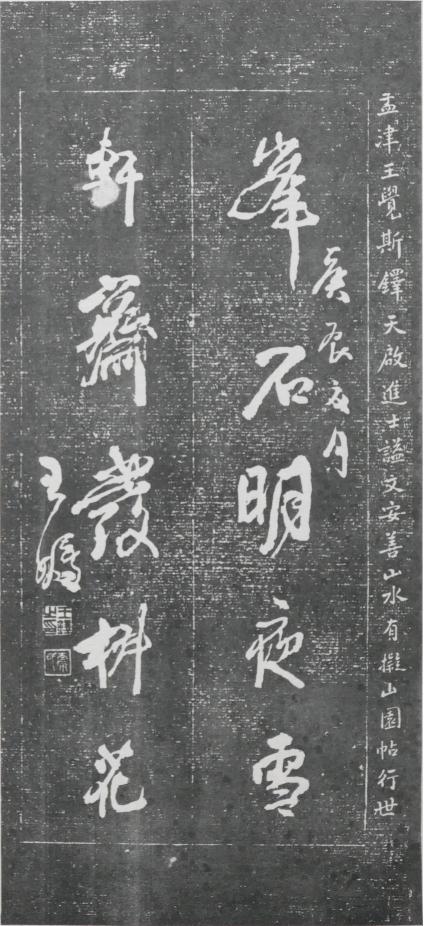 孟津王覺斯鐸天啟進士謚文安善山水有擬山園帖行世
峯石明夜雪
庚辰夏月
軒齋發樹花
王鐸